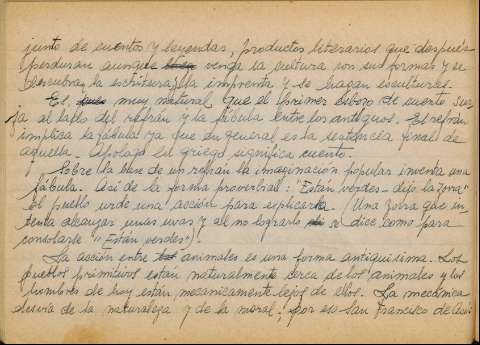 junto de cuentos y leyendas, productos literarios que después
perduran aunque venga la cultura con sus formas y se
descubra la escritura, la imprenta y se hagan esculturas.
Es, muy natural que el primer esbozo de cuento sur
ja al lado del refrán y la fábula entre los antiguos. El refrán
implica la fábula ya que en general es la sentencia final de
aquella. Apólogo en griego significa cuento.
Sobre la base de un refrán la imaginación popular inventa una
fábula. Así de la forma proverbial: "Están verdes - dijo la zorra"
el pueblo urde una acción para explicarla. (Una zorra que in-
tenta alcanzar unas uvas y al no lograrlo se dice como para
consolarse "Están verdes").
La acción entre animales es una forma antiquísima. Los
pueblos primitivos están naturalmente cerca de los animales y los
hombres de hoy están mecanicamente lejos de ellos. La mecánica
desvía de la naturaleza y de la moral; por eso San Francisco de Asís